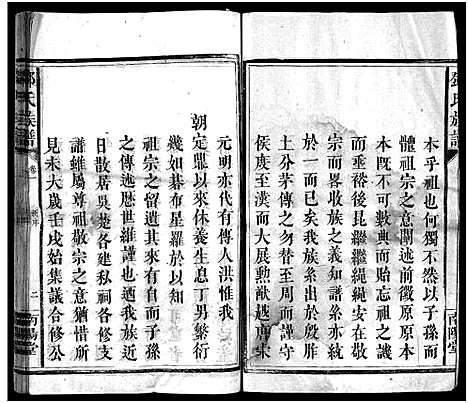 鄧氏族譜
南陽堂
本乎祖也何獨不然以子孫而
體祖宗之意闡述前徽原原本
本既不可數典而忘其始于以
垂裕後昆繼繼繩繩安在敬其
宗而畧收族之義知譜系亦統
於一而已矣我族始於殷胙
土分茅傳之勿替下至西周守
侯度至漢而大展勳猷越唐宋
元明亦代有傳人洪惟我
朝定鼎以來休養生息丁男繁衍
幾如碁布星羅於以向
祖宗之留貽其來有自而子孫
之傳述歴世維謹也迺我族近
日散居吳楚各建私祠各修支
譜雖屬尊祖敬宗之意猶惜所
見未大歲壬戌始集議合修公
鄧氏族譜
卷
二
南陽堂